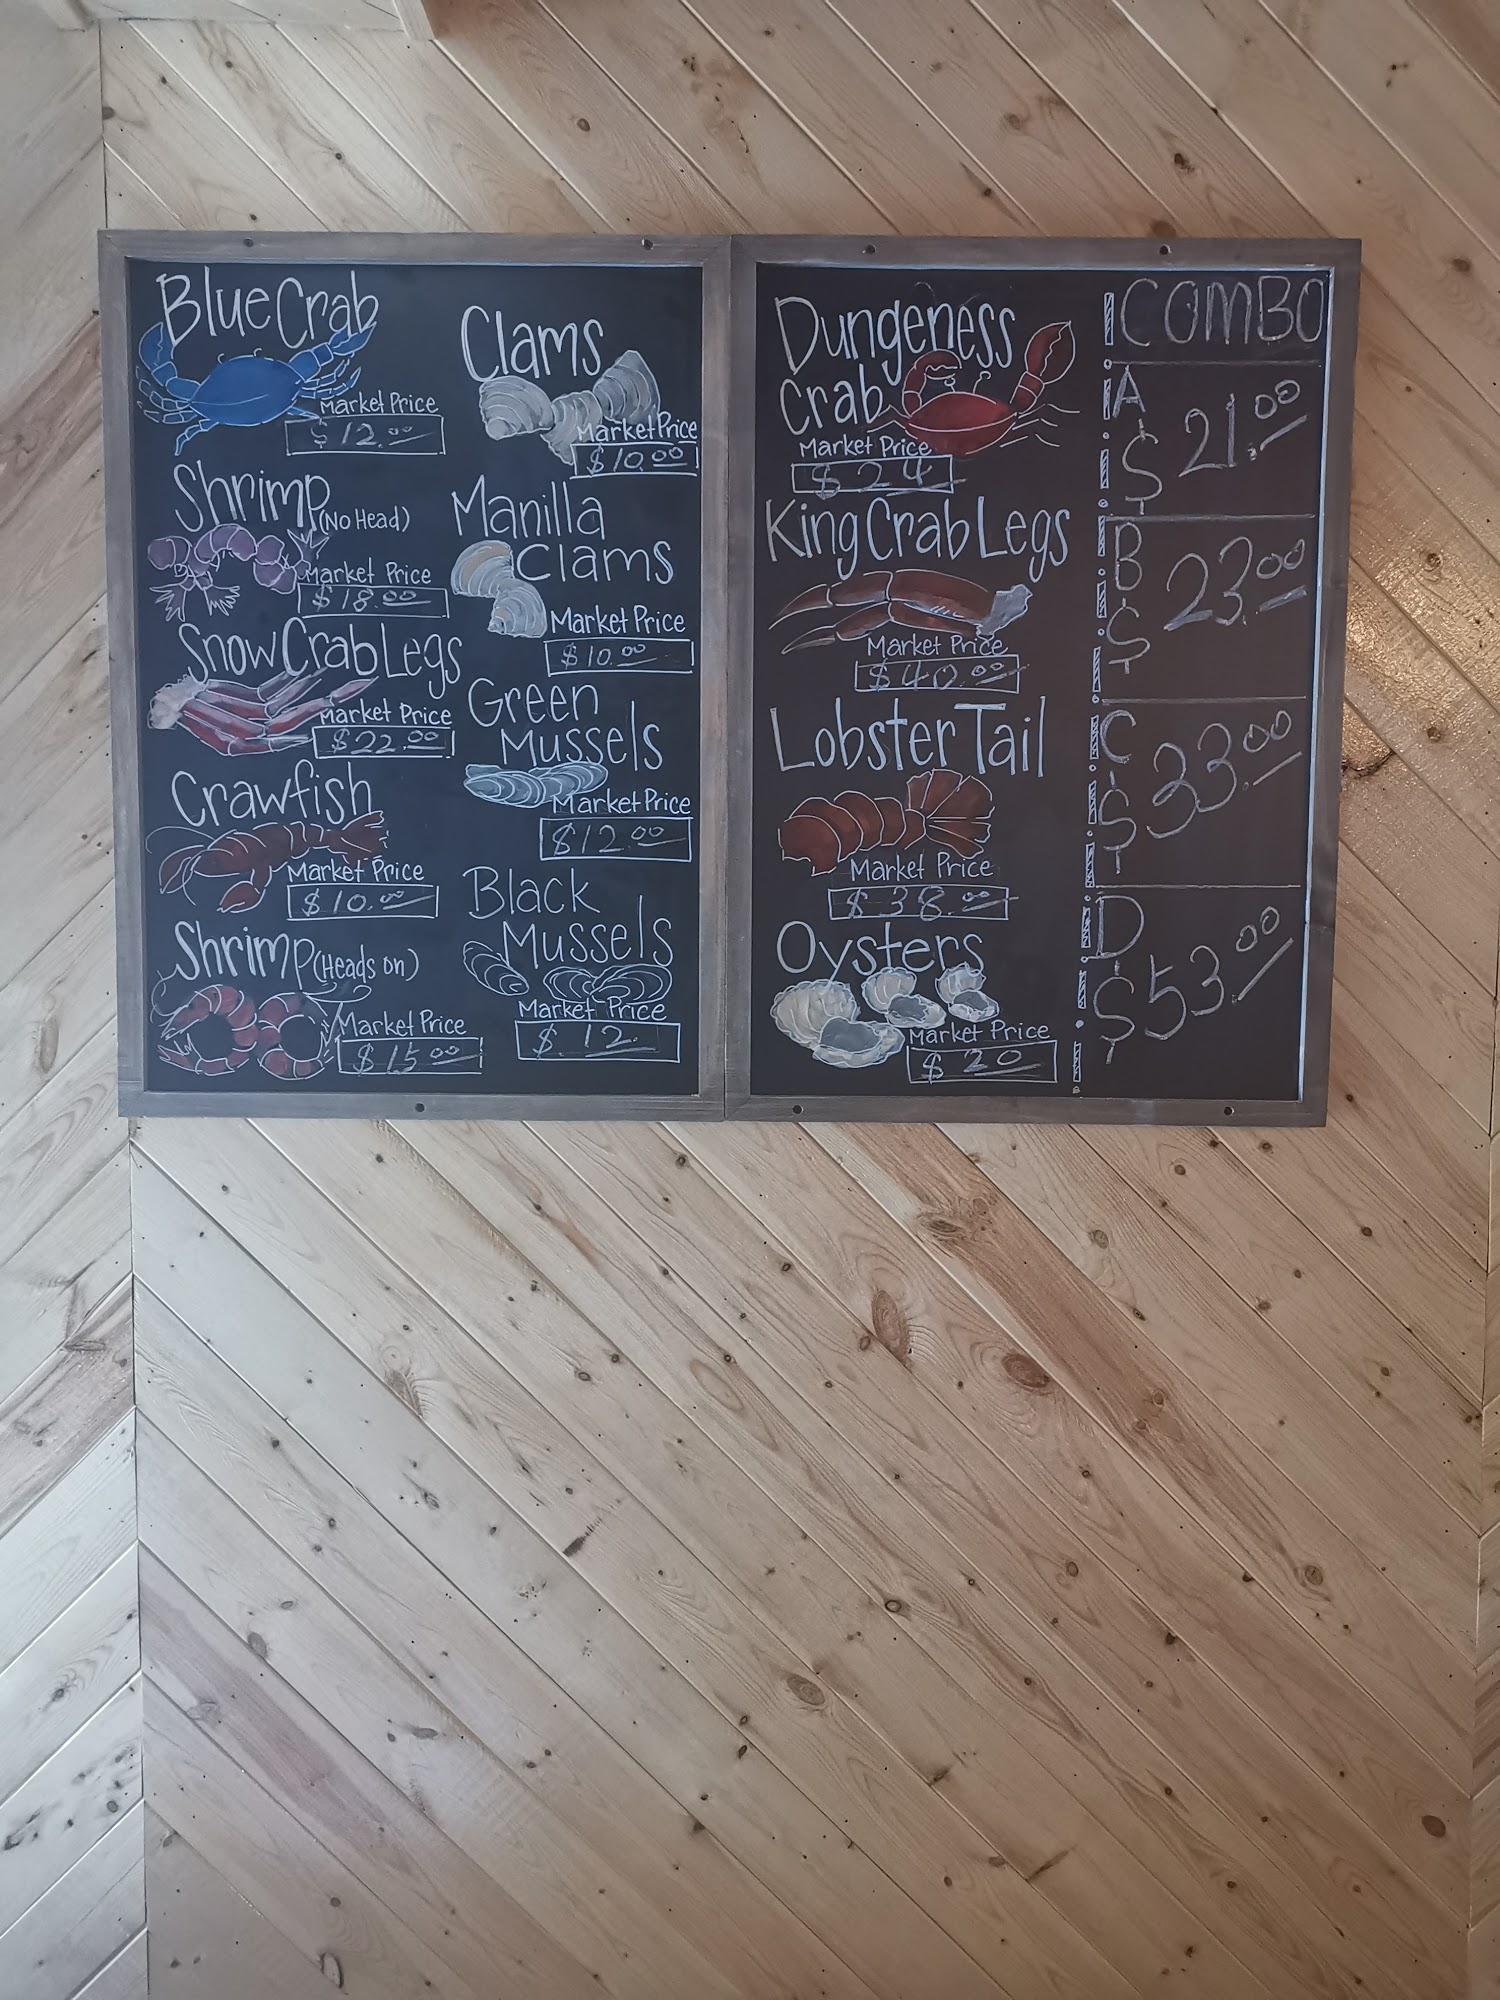 Blue Crab
Market Price
$12.00
Shrimp (No Head)
Market Price
$18.00
Snow Crab Legs
Market Price
$22.00
Crawfish
Market Price
$10.00
Shrimp (Heads on)
Market Price
$15.00
Clams
Market Price
$10.00
Manilla
Clams
Market Price
$10.00
Green
Mussels
Market Price
$12.00
Black
Mussels
Market Price
$12.
Dungeness
Crab
Market Price
$24
King Crab Legs
Market Price
$40.00
Lobster Tail
Market Price
$38.00
Oysters
Market Price
$20
COMBO
A
$21.00
B
$23.00
C
$33.00
D
$53.00